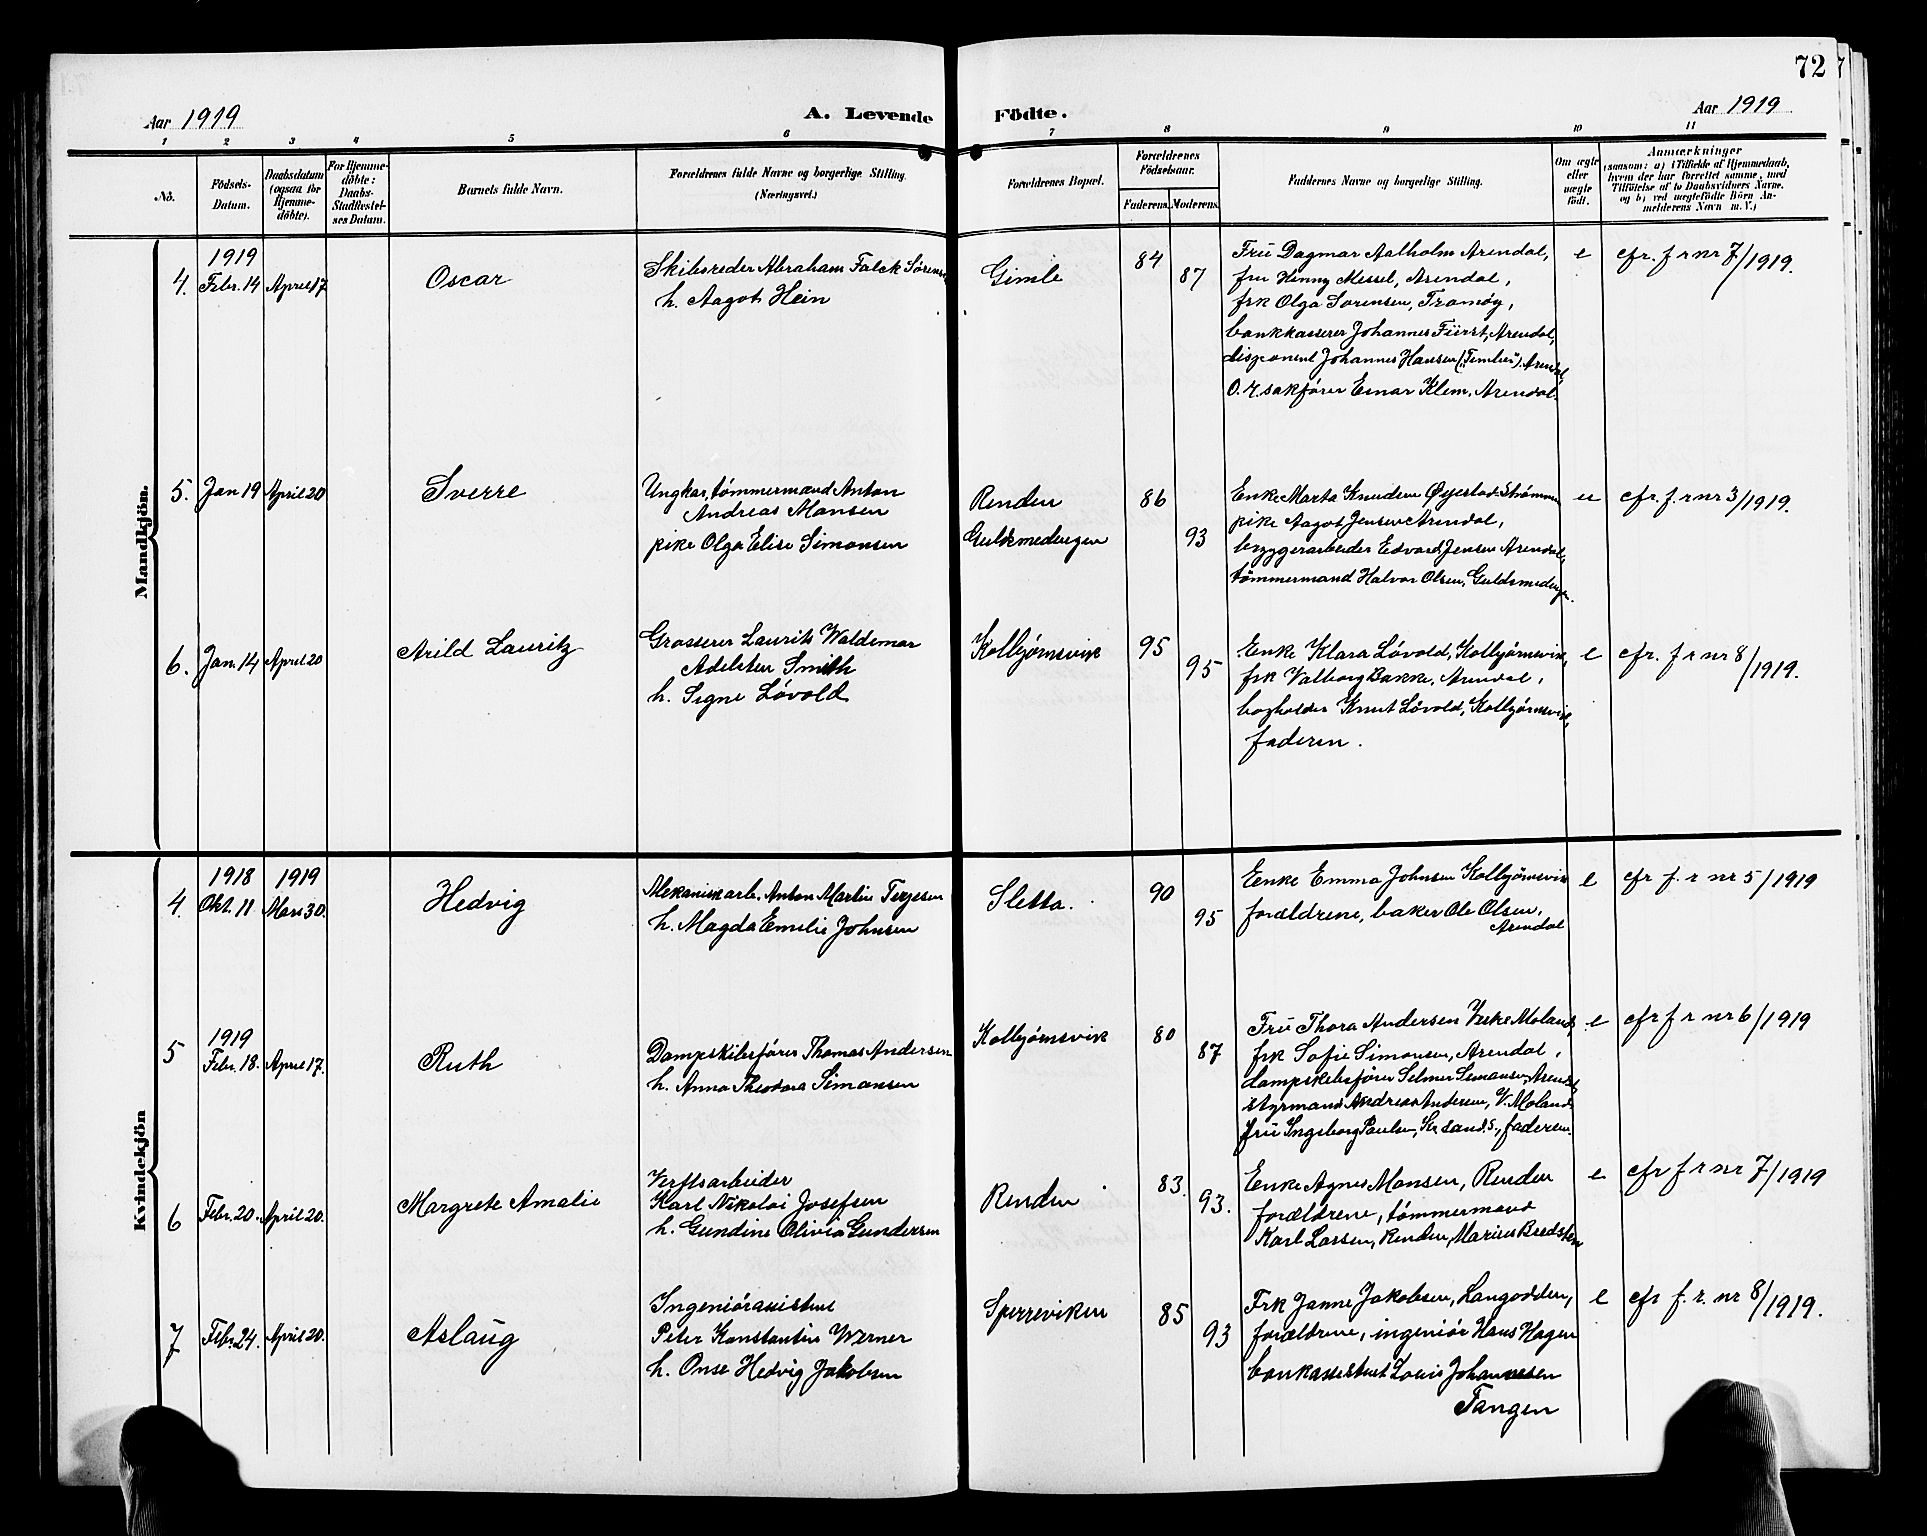 72
Aar 1919
A. Levende
Födte.
Aar 1919
1 2 3 4 5 6 7 8 9 10 11
No.
Födsels-
Datum.
Daabsdatum
(ogsaa for
Hjemme-
döbte).
For Hjemme-
döbte:
Daabs-
Stadfæstel-
ses Datum.
Barnets fulde Navn.
Forældrenes fulde Navne og borgerlige Stilling.
(Næringsvei.)
Forældrenes Bopæl.
Forældrenes
Födselsaar.
Faderens. Moderens.
Faddernes Navne og borgerlige Stilling.
Om ægte
eller
uægte
födt.
Anmærkninger
(saasom: a) i Tilfælde af Hjemmedaab,
hvem der har forrettet samme, med
Tilföielse af to Daabsvidners Navne,
og b) ved uægtefödte Börn An-
melderens Navn m. V.)
Mandkjön.
4. 1919
Febr. 14 April 17
Oscar
Skibsreder Abraham Falck Sørensen
h. Aagot Hein
Gimle
84
87
Frü Dagmar Aalholm Arendal,
fru Henny Messel, Arendal,
frk Olga Sørensen, Tromøy,
bankkasserer Johannes Fürst, Arendal,
disponent Johannes Hansen Arendal,
O.r.sakfører Einar Klem, Arendal.
e
cfr. f r nr 7/1919.
5. Jan 19 April 20
Sverre
Ungkar, tømmermand Anton
Andreas Monsen
pike Olga Elise Simonsen
Renden
Guldsmedengen
86
93
Enke Marta Knudsen Øyestad Strømmen
pike Aagot Jensen Arendal,
bryggerarbeider Edvard Jensen Arendal,
tømmermand Halvor Olsen, Guldsmedengen.
u
cfr. f. r nr 3/1919.
6. Jan. 14 April 20
Arild Lauritz
Grosserer Laurits Waldemar
Adelsten Smith
h. Signe Løvold
Kolbjørnsvik
95
95
Enke Klara Løvold, Kolbjørnsvik,
frk Valborg Bakke, Arendal,
bogholder Knut Løvold, Kolbjørnsvik,
faderen.
e
cfr. f r nr 8/1919.
Kvindekjön
4. 1918 1919
Okt. 11 Mars 30.
Hedvig
Mekanisk arb. Anton Martin Terjesen
h. Magda Emilie Johnsen
Sletta.
90
95
Eenke Emma Johnsen Kolbjørnsvik
forældrene, baker Ole Olsen,
Arendal
e
cfr f. r nr 5/1919
5 1919
Febr. 18. April 17.
Ruth
Dampskibsfører Thomas Andersen
h. Anna Theodora Simonsen
Kolbjørnsvik
80
87
Frü Thora Andersen Vestre Moland,
frk Sofie Simonsen, Arendal,
dampskibsfører Selmer Simonsen, Arendal
styrmand Andreas Andersen, V. Moland
frü Ingeborg Paulsen, Kr.sand S., faderen.
e
cfr f r nr 6/1919
6 Febr. 20. April 20.
Margrete Amalie
Verftsarbeider
Karl Nikolai Josefsen
h. Gundine Olivia Gundersen
Renden
83.
93.
Eenke Agnes Monsen, Renden
forældrene, tømmermand
Karl Larsen, Renden, Marius Bredsten
e
cfr f r nr 7/1919
7 Febr. 24. April 20.
Aslaug
Ingeniørassistent
Peter Konstantin Werner
h. Onse Hedvig Jakobsen
Sperreviken
85
93
Frk Janne Jakobsen, Langodden,
forældrene, ingeniør Hans Hagen
bankassistent Louis Johannesen
Tangen
e
cfr f. r. nr 8/1919.